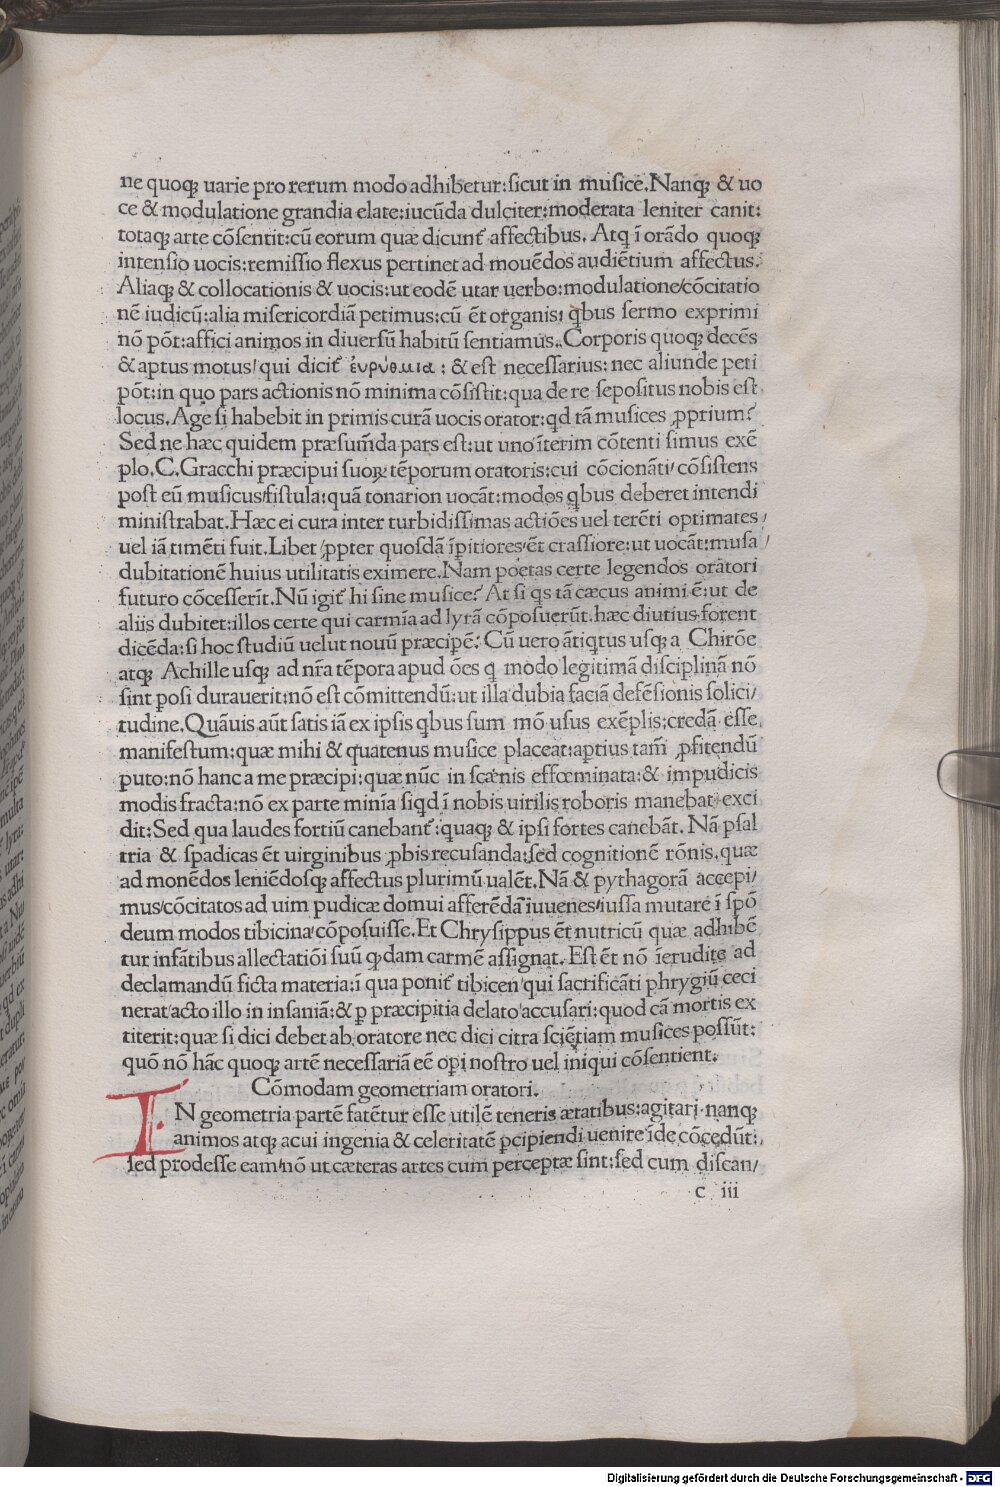 ne quoqꝫ uarie pro rerum modo adhibetur:sicut in musice.Nanqꝫ & uo
ce & modulatione grandia elate:iucūda dulciter:moderata leniter canit:
totaqꝫ arte cōsentit:cū eorum quæ dicunt᷑ affectibus. Atqꝫ ī orādo quoqꝫ
intensio uocis:remissio flexus pertinet ad mouēdos audiētium affectus.
Aliaqꝫ & collocationis & uocis:ut eodē utar uerbo:modulatione/cōcitatio
nē iudicū:alia misericordiā petimus:cū ēt organis: qbus sermo exprimi
nō pōt:affici animos in diuersū habitū sentiamus. Corporis quoqꝫ decēs
& aptus motus/qui dicit᷑ ἐυρυθμια : & est necessarius: nec aliunde peti
pōt:in quo pars actionis nō minima cōsistit:qua de re sepositus nobis est
locus. Age si habebit in primis curā uocis orator:qd tā musices ꝓprium?
Sed ne hæc quidem præsum̄da pars est:ut uno īterim cōtenti simus exē
plo.C.Gracchi præcipui suoꝝ tēporum oratoris:cui cōcionāti/cōsistens
post eū musicus/fistula:quā tonarion uocāt:modos qbus deberet intendi
ministrabat.Hæc ei cura inter turbidissimas actiōes uel terēti optimates/
uel iā timēti fuit.Libet ꝓpter quosdā īpitiores/ēt crassiore:ut uocāt:musa/
dubitationē huius utilitatis eximere.Nam poetas certe legendos oratori
futuro cōcesserīt.Nū igit᷑ hi sine musice? At si qs tā cæcus animi ē:ut de
aliis dubitet:illos certe qui carmīa ad lyrā cōposuerūt.hæc diutius forent
dicēda:si hoc studiū uelut nouū præcipē. Cū uero ātiqtus usqꝫ a Chirōe
atqꝫ Achille usqꝫ ad nr̄a tēpora apud ōes q modo legitimā disciplinā nō
sint posi durauerit:nō est cōmittendū:ut illa dubia faciā defēsionis solici/
tudine.Quāuis aūt satis iā ex ipsis qbus sum mō usus exēplis:credā esse
manifestum:quæ mihi & quatenus musice placeat:aptius tam̄ ꝓfitendū
puto:nō hanc a me præcipi:quæ nūc in scænis effœminata:& impudicis
modis fracta:nō ex parte minīa siqd ī nobis uirilis roboris manebat/exci
dit:Sed qua laudes fortiū canebant᷑:quaqꝫ & ipsi fortes canebāt. Nā psal
tria & spadicas ēt uirginibus ꝓbis recusanda:sed cognitionē rōnis.quæ
ad monēdos leniēdosqꝫ affectus plurimū ualēt.Nā & pythagorā accepi/
mus/cōcitatos ad uim pudicæ domui afferēdā iuuenes/iussa mutare ī spō
deum modos tibicina/cōposuisse.Et Chrysippus ēt nutricū quæ adhibē
tur infātibus allectatiōi suū qdam carmē assignat. Est ēt nō īerudite ad
declamandū ficta materia:ī qua ponit᷑ tibicen/qui sacrificāti phrygiū ceci
nerat/acto illo in insaniā:& ꝑ præcipitia delato/accusari:quod cā mortis ex
titerit:quæ si dici debet ab oratore nec dici citra sciētiam musices possūt:
quō nō hāc quoqꝫ artē necessariā eē opi nostro uel iniqui cōsentient.
Cōmodam geometriam oratori.
IN geometria partē fatētur esse utilē teneris ætatibus:agitari nanqꝫ
animos atqꝫ acui ingenia & celeritatē ꝑcipiendi uenire īde cōcedūt:
sed prodesse eam/nō ut cæteras artes cum perceptæ sint:sed cum discan/
c iii
Digitalisierung gefördert durch die Deutsche Forschungsgemeinschaft - DFG